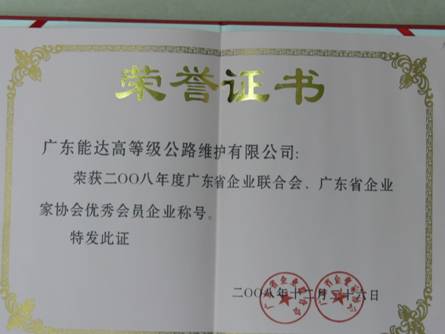 荣誉证书
广东能达高等级公路维护有限公司:
荣获二OO八年度广东省企业联合会、广东省企业
家协会优秀会员企业称号。
特发此证
二OO八年十二月二十六日